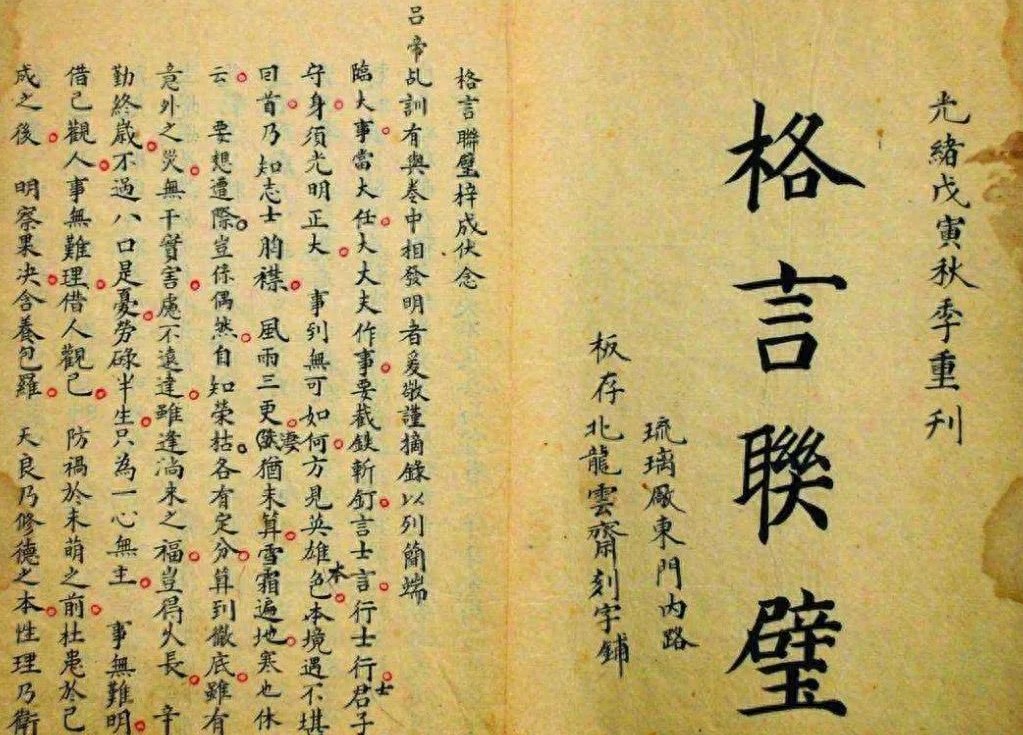 光緒戊寅秋季重刊
格言聯璧
琉璃厰東門內路
板存北龍雲齋刻字鋪
格言聯璧梓成伏念
呂帝乩訓有與卷中相發明者爰敬謹摘錄以列簡端
臨大事當大任大大夫作事要截鉄斬釘言士言行士行君子
士
守身須光明正大 事到無可如何方見英雄色本境遇不堪
本
回首乃知志士胸襟 風雨三更猶未算雪霜遍地寒也休
凄
云 要想遭際豈係偶然自知榮枯各有定分算到徹底雖有
意外之災無干實害處不遠違雖逢淌來之福豈得久長 辛
勤終歲不過八口是憂勞碌半生只為一心無主 事無難明
借己觀人事無難理借人觀己 防禍於未萌之前杜患於已
成之後 明察果决含養包羅 天良乃修德之本性理乃衛